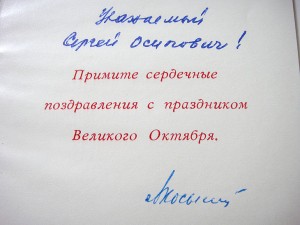 Уважаемый
Сергей Осипович!
Примите сердечные
поздравления с праздником
Великого Октября.